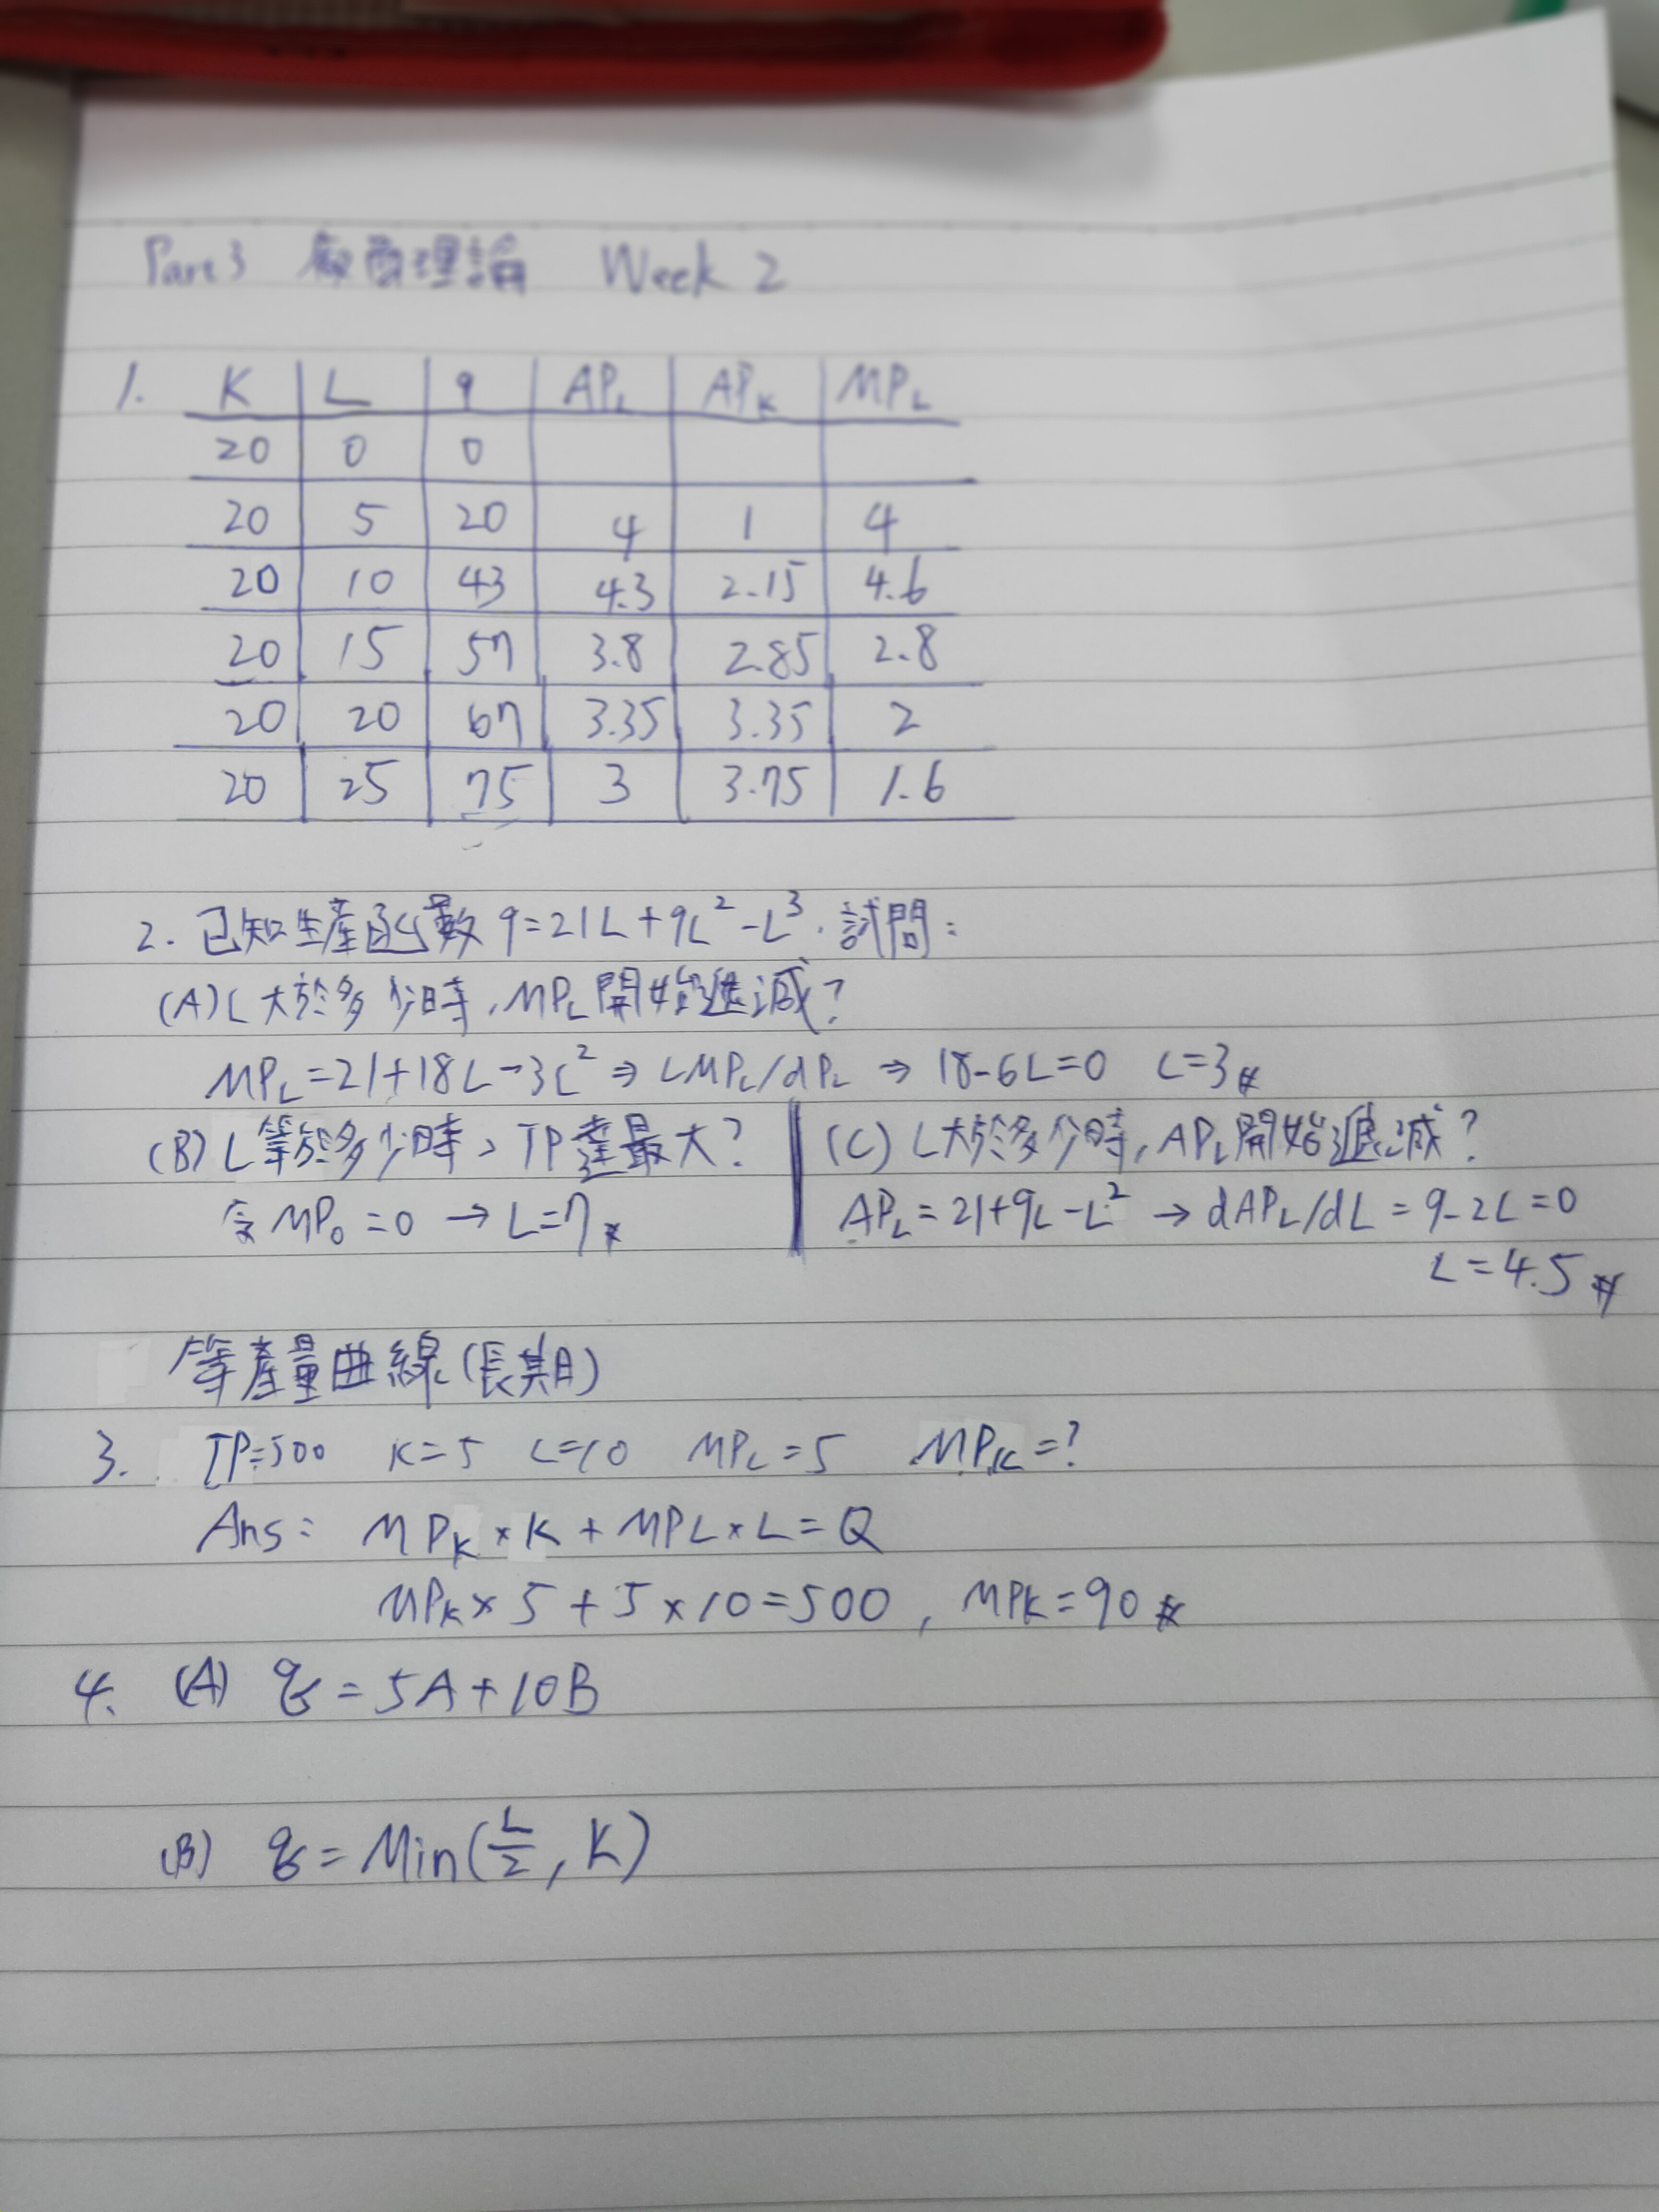 Part 3 廠商理論 Week 2
1. K L q APL APK MPL
20 0 0
20 5 20 4 1 4
20 10 43 4.3 2.15 4.6
20 15 57 3.8 2.85 2.8
20 20 67 3.35 3.35 2
20 25 75 3 3.75 1.6
2. 已知生產函數 q=21L+9L²-L³, 試問:
(A) L大於多少時, MPL開始遞減?
MPL=21+18L-3L² ⇒ LMPL/dPL ⇒ 18-6L=0 L=3#
(B) L等於多少時, TP達最大?
令MP0=0 → L=7#
(C) L大於多少時, APL開始遞減?
APL=21+9L-L² → dAPL/dL=9-2L=0
L=4.5#
等產量曲線(長期)
3. TP=500 K=5 L=10 MPL=5 MPK=?
Ans: MPK×K+MPL×L=Q
MPK×5+5×10=500, MPK=90#
4. (A) q=5A+10B
(B) q=Min(L/2, K)